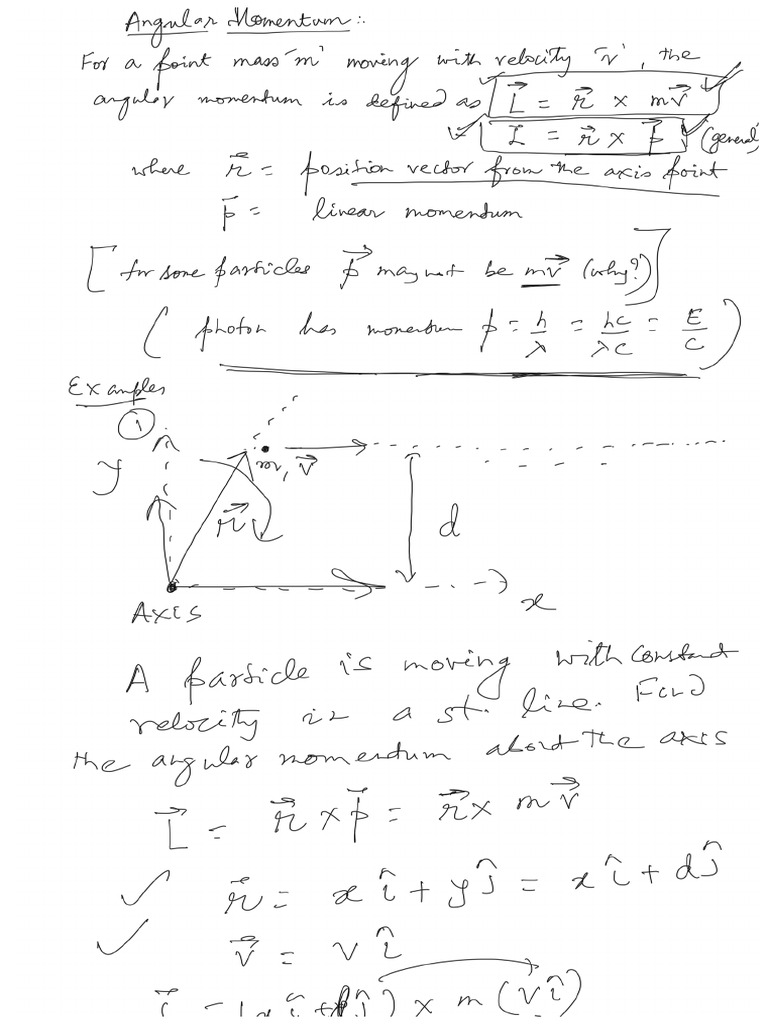 Angular Momentum :-
For a point mass 'm' moving with velocity 'v', the
angular momentum is defined as L⃗ = r⃗ × mv⃗
L = r⃗ × p⃗ (general)
where r⃗ = position vector from the axis point
p⃗ = linear momentum
[for some particles p⃗ may not be mv⃗ (why?)]
(photon has momentum p = h/λ = hc/λc = E/c)
Examples
1
y
m, v⃗
r⃗
d
x
AXIS
A particle is moving with constant
velocity in a st. line. Find
the angular momentum about the axis
L⃗ = r⃗ × p⃗ = r⃗ × mv⃗
r⃗ = xî + yĵ = xî + dĵ
v⃗ = vî
) × m (vî)